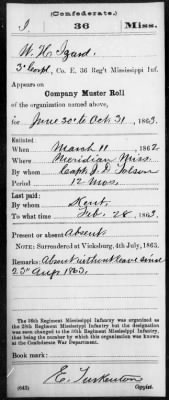 (Confederate.)
I. 36 Miss.
W. H. Izard
3' Corpl, Co. E, 36 Reg't Mississippi Inf.
Appears on
Company Muster Roll
of the organization named above,
for June 30 to Oct 31, 1863.
Enlisted:
When March 11, 1862
Where Meridian Miss.
By whom Capt. J. D.
Period 12 mos.
Last paid:
By whom Kent.
To what time Feb. 28, 1863.
Present or absent Absent
NOTE: Surrendered at Vicksburg, 4th July, 1863.
Remarks: Absent without leave since
23d Aug 1863.
The 36th Regiment Mississippi Infantry was organized as
the 28th Regiment Mississippi Infantry but the designation
was soon changed to 36th Regiment Mississippi Infantry,
that being the number by which this organization was known
at the Confederate War Department.
Book mark:
(642) E. Copyist.